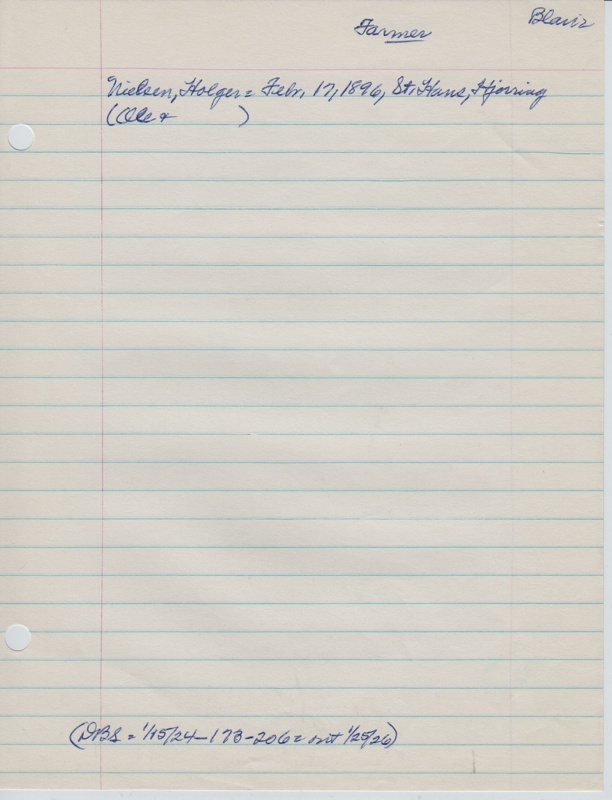 Blair
Farmer
Nielsen, Holger = Febr. 17, 1896, St. Hans, Hjorring
(Ole & )
(DBS = 1/15/24 - 173 - 206 = out 1/25/26)